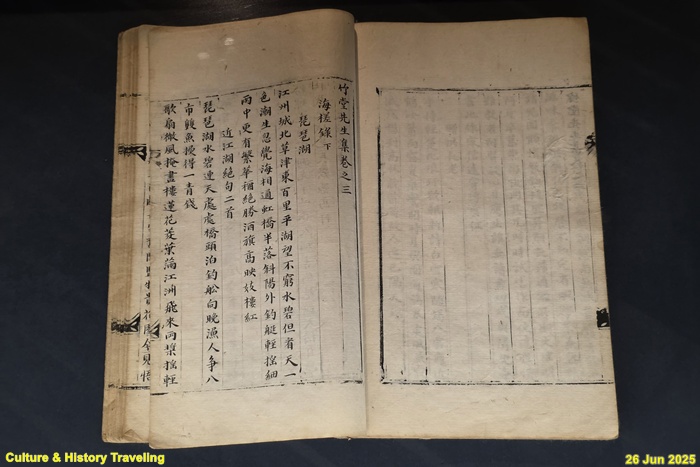 竹堂先生集卷之三
海槎錄下
琵琶湖
江州城北草津東百里平湖望不窮水碧但看天一
色潮生忽覺海相通虹橋半落斜陽外釣艇輕搖細
雨中更有繁華稱絶勝酒旗高映妓樓紅
近江湖絶句二首
琵琶湖水碧連天處處橋頭泊釣舩向晚漁人争入
市鰒魚換得一青錢
歌扇微風掩畫樓蓮花菱葉滿江洲飛來兩槳搖輕
Culture & History Traveling
26 Jun 2025